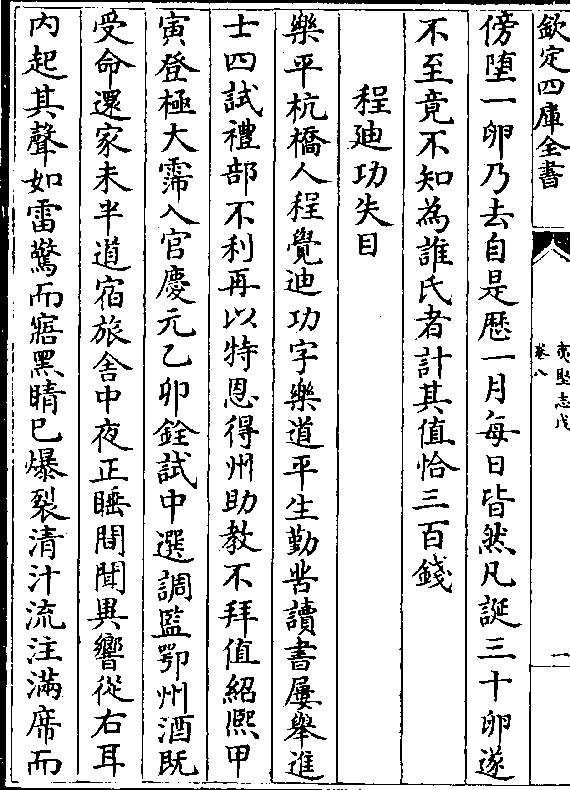 欽定四庫全書
夷堅志戊
卷八
一
傍墮一卵乃去自是歷一月每日皆然凡誕三十卵遂
不至竟不知為誰氏者計其值恰三百錢
程廸功失目
樂平杭橋人程覺廸功字樂道平生勤苦讀書屢舉進
士四試禮部不利再以特恩得州助教不拜值紹熙甲
寅登極大霈入官慶元乙卯銓試中選調監鄂州酒既
受命還家未半道宿旅舎中夜正睡間聞異響從右耳
内起其聲如雷驚而寤黑睛已爆裂清汁流注滿席而